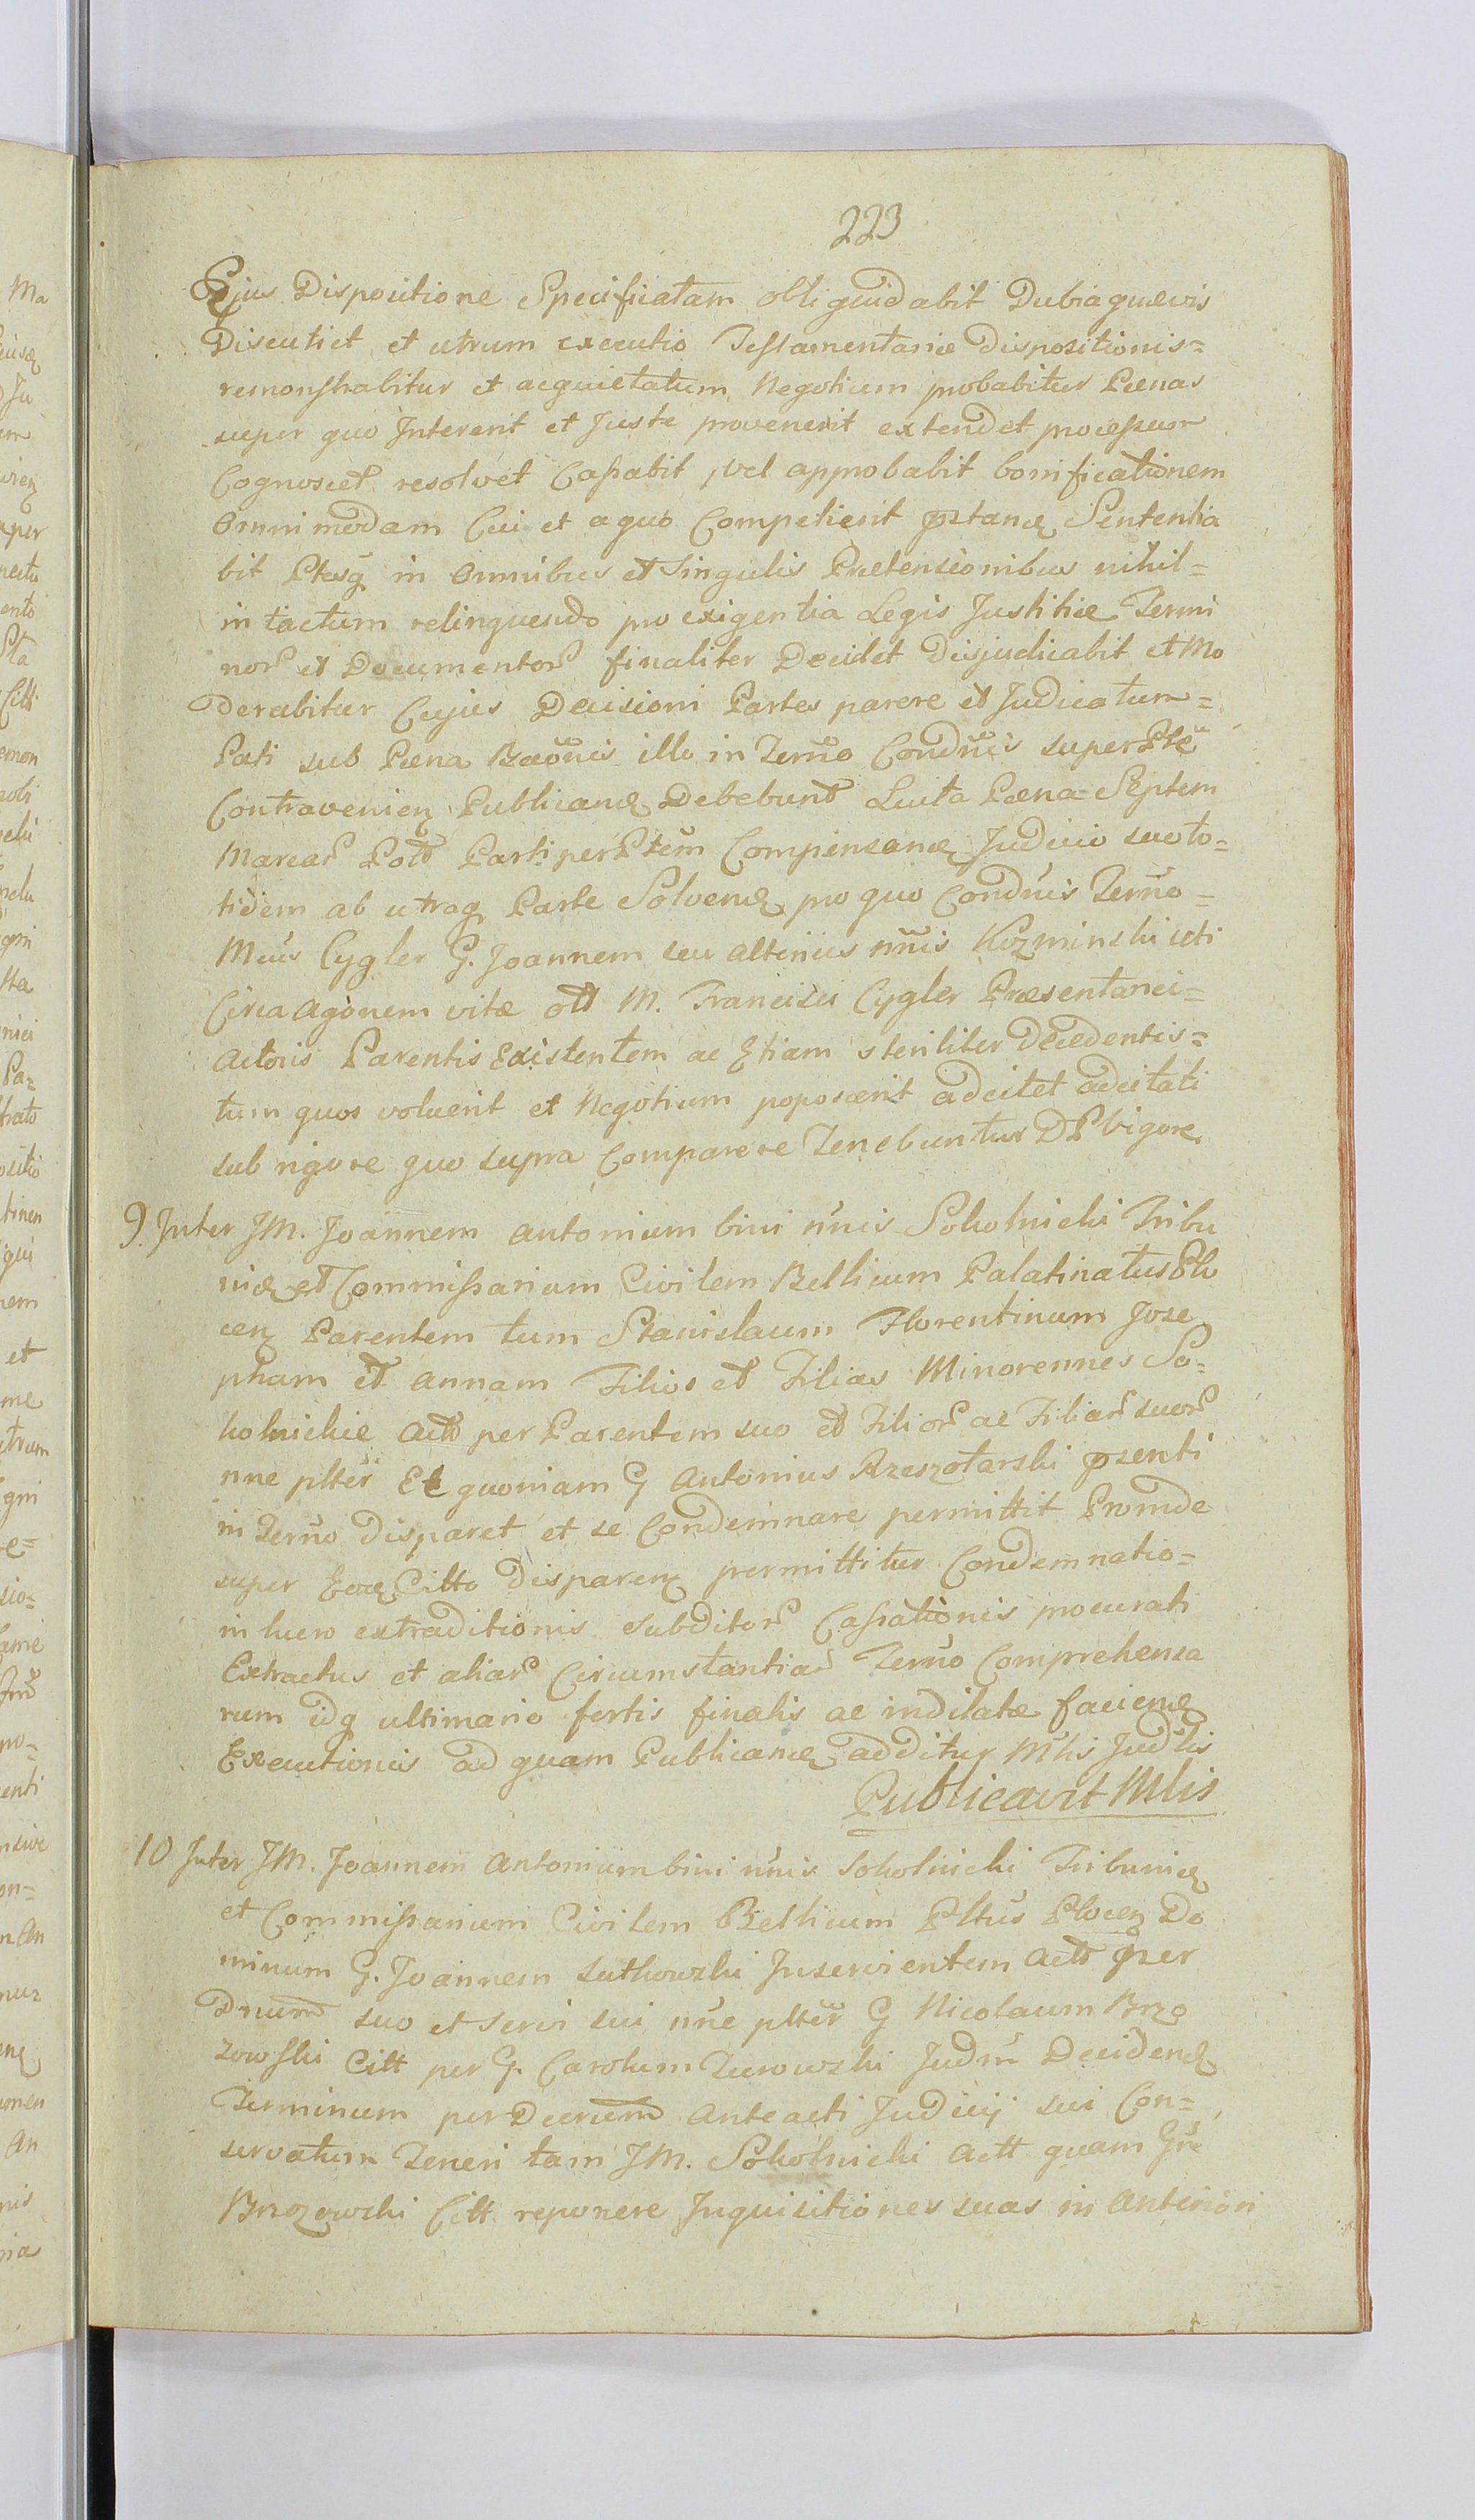 223
Ejus Dispositione Specificatam obliquidabit Dubiaquævis
Discutiet et utrum executio Testamentariæ Dispositionis=
remonstrabitur et acquietatum Negotium probabitur Pænas
super quo Intererit et Juste provenerit extendet processum
Cognoscet resolvet Cassabit, vel approbabit bonificationem
Omnimodam Cui et a quo Competierit Sententia
bit Ptesq in Omnibus et Singulis Prætensionibus nihil=
intactum relinquendo pro exigentia Legis Justitiæ Termi
nor et Documentor finaliter Decidet Disjudicabit et Mo
Derabitur Cujus Decisioni Partes parere et Judicatum=
Pati sub Pæna Baonis illo in Termo Condnis super Pte
Contravenien Publicand Debebunt Luita Pæna Septem
Marcar Pott Parti per Ptem Compensand Judicio suo to=
tidem ab utraq Parte Solvend, pro quo Condnis Termo=
Mcus Cygler G. Joannem seu alterius nnis Kozminski uti
Circa agonem vitæ ott M. Francisci Cygler Præsentanei=
Actoris Parentis Existentem ac Etiam steriliter Decedentis=
tum quos voluerit et Negotium poposcerit adcitet adcitati
sub rigore quo supra Comparere Tenebuntur DP Vigore
9. Inter JM. Joannem Antonium bini nnis Sokolnicki Tribu
nid et Commissarium Civilem Bellicum Palatinatus Plo
cen Parentem tum Stanislaum Florentinum Jose
pham et Annam Filios et Filias Minorennes So=
kolnickie Actt per Parentem suo et Filior ac Filiar suor
nne pltter Et quoniam G Antonius Rzeszotarski pzenti
in Termo Disparet et se Condemnare permittit Proinde
super Eod Citto Disparen permittitur Condemnatio=
in lucro extraditionis Subditor Cassationis procurati
Extractus et aliar Circumstantiar Termo Comprehensa
rum idq ultimario fortis finalis ac indilatæ faciend
Executionis ad quam Publicand additur Mlis Judlis
Publicavit Mlis
10 Inter JM. Joannem Antonium bini nnis Sokolnicki Tribunid
et Commissarium Civilem Bellicum Pltus Plocen Do
minum G. Joannem Sutkowski Inservientem Actt per
Dnum suo et servi sui nne pltter G Nicolaum Brzo
zowski Citt per G. Carolum Zurowski Judm Decidend
Terminum per Decretum Anteacti Judicij sui Con=
servatum Teneri tam JM. Sokolnicki Actt quam Gr
Brzozowski Citt reponere Inquisitiones suas in Anteriori